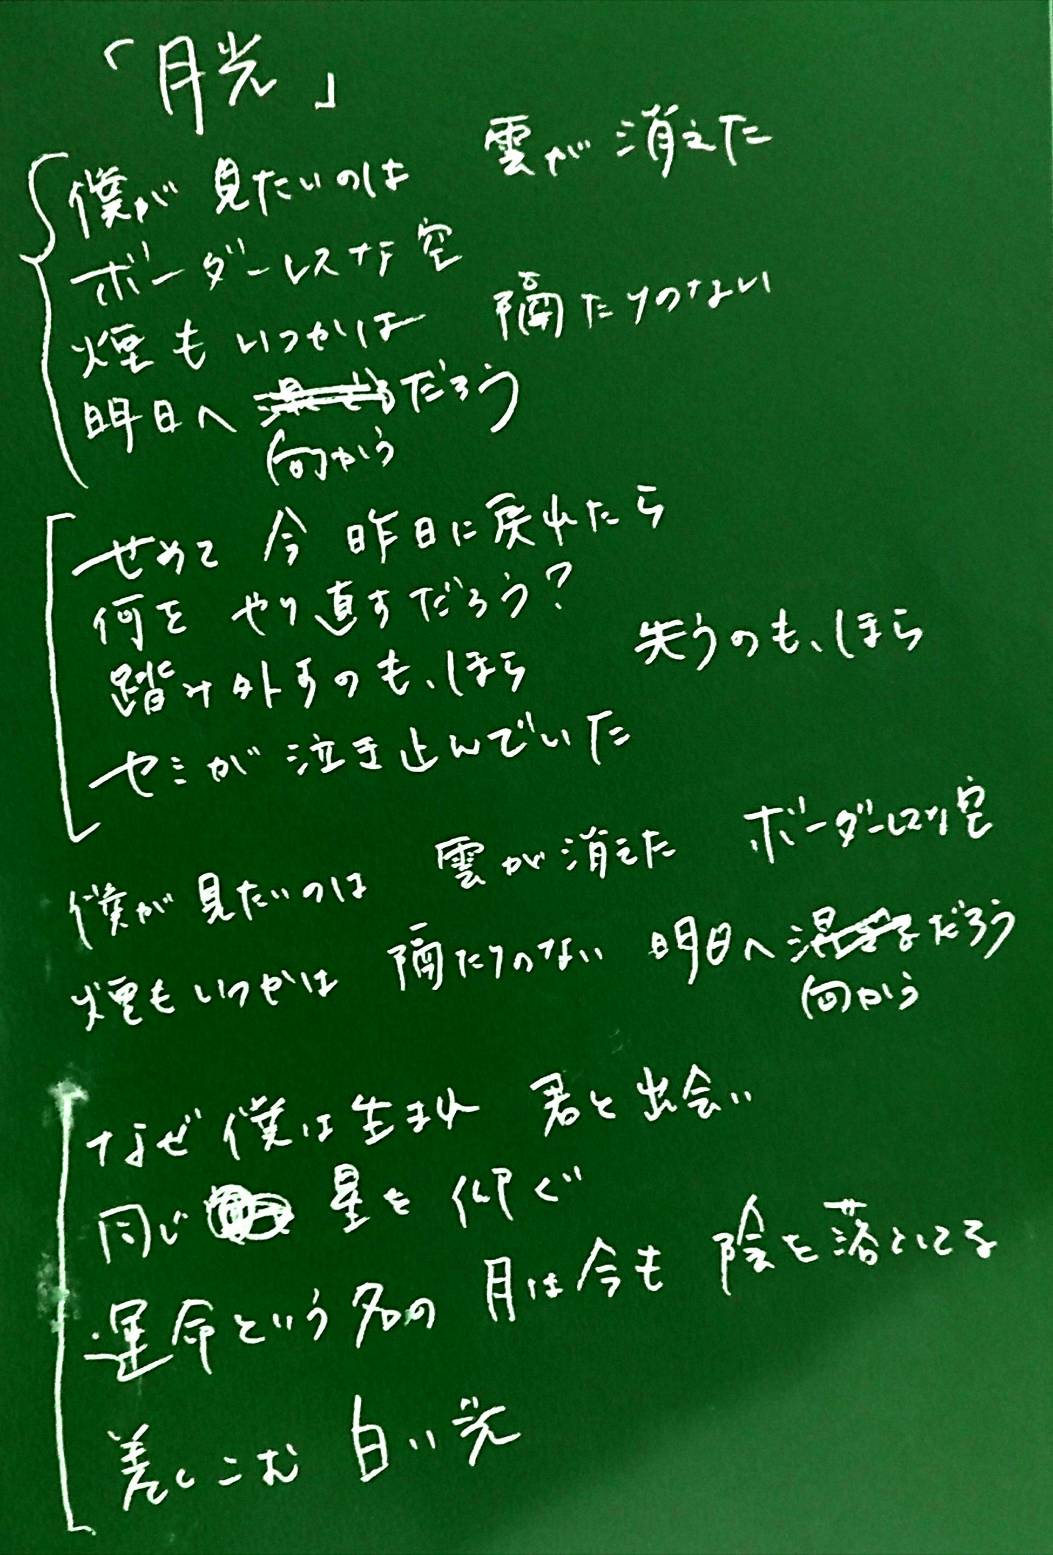 「月光」
僕が 見たいのは 雲が 消えた
ボーダーレスな 空
煙も いつかは 隔たりのない
明日へ だろう
向かう
せめて 今 昨日に 戻れたら
何を やり直すだろう?
踏み外すのも、ほら 失うのも、ほら
セミが 泣き止んでいた
僕が 見たいのは 雲が 消えた ボーダーレスな 空
煙も いつかは 隔たりのない 明日へ だろう
向かう
なぜ 僕は 生まれ 君と 出会い
同じ 星を 仰ぐ
運命という 名の 月は 今も 陰を 落としてる
差しこむ 白い 光